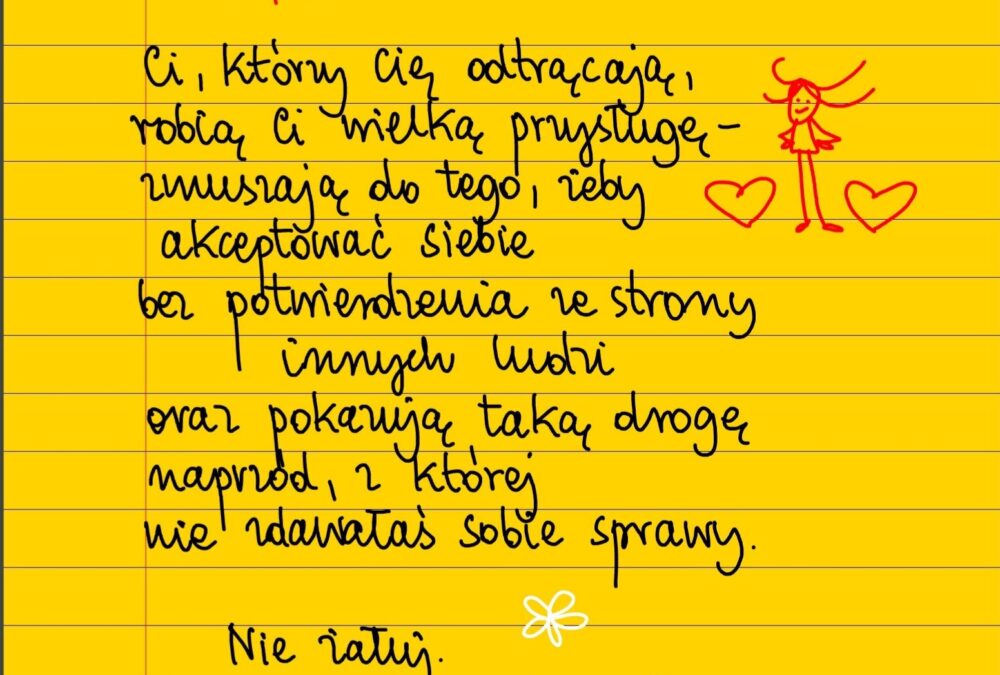 Ci, którzy Cię odtrącają,
robią Ci wielką przysługę –
zmuszają do tego, żeby
akceptować siebie
bez potwierdzenia ze strony
innych ludzi
oraz pokazują taką drogę
naprzód, z której
nie zdawałaś sobie sprawy.
Nie żałuj.